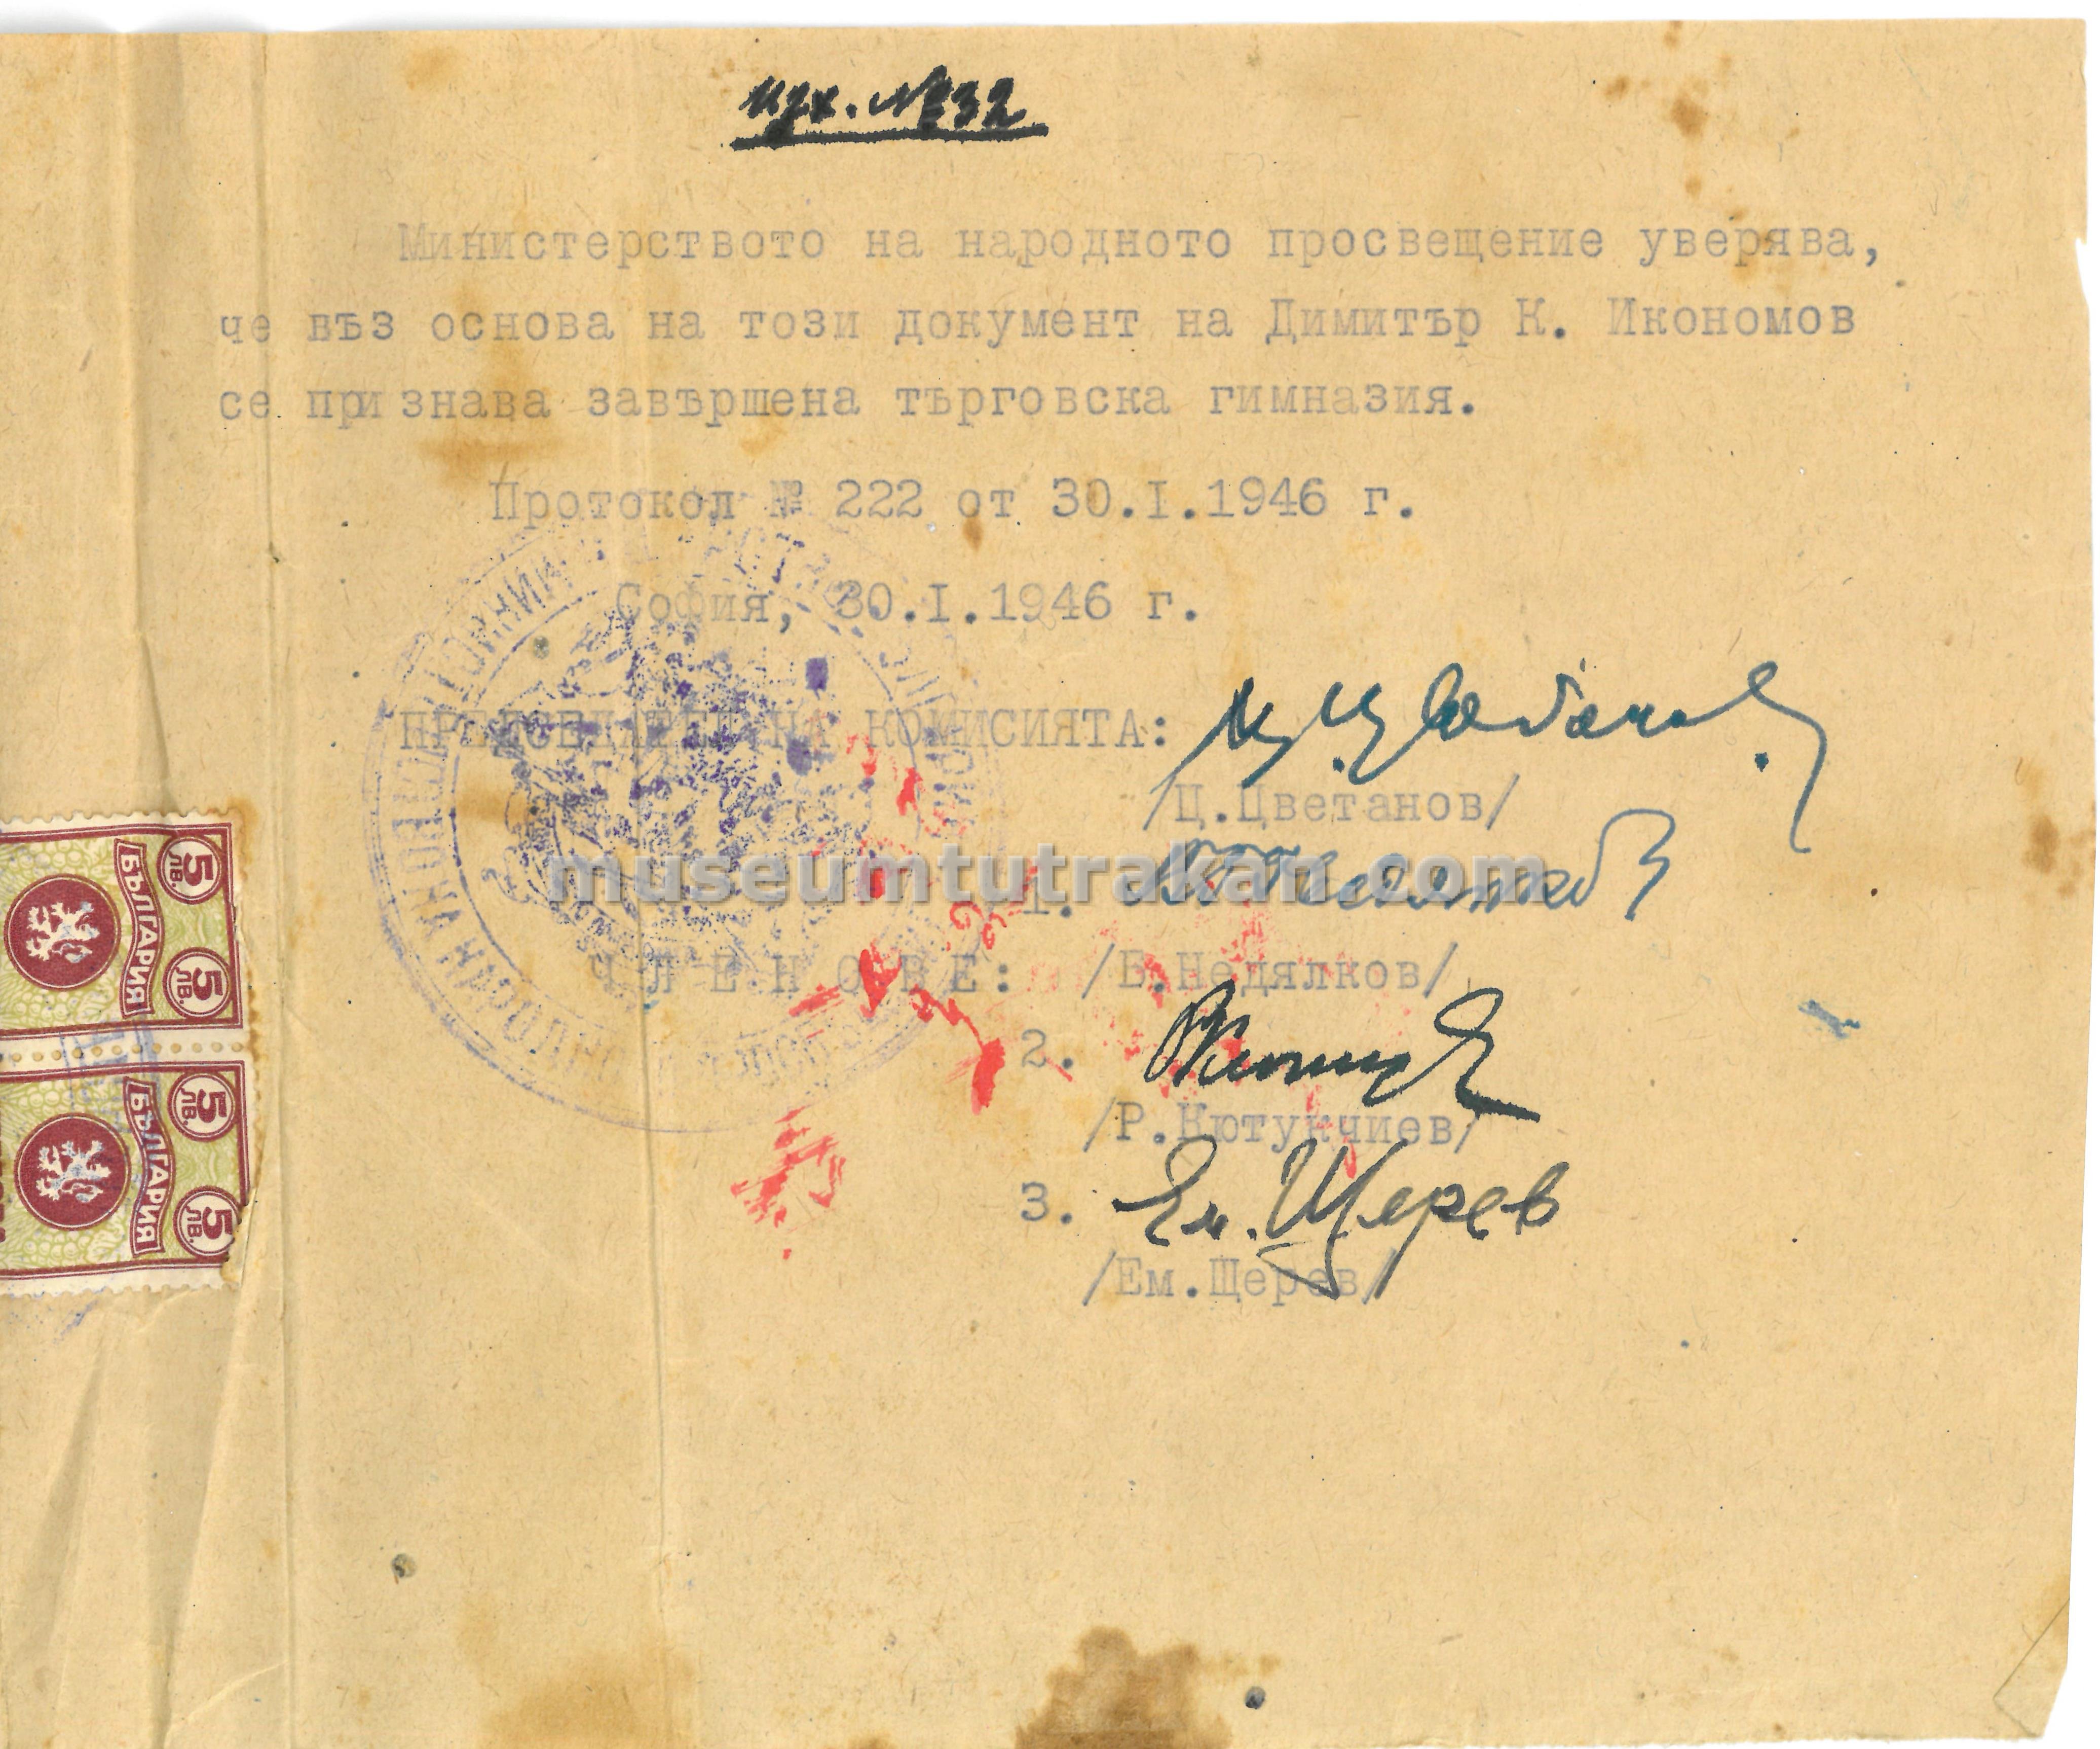 изх. №32
Министерството на народното просвещение уверява,
че въз основа на този документ на Димитър К. Икономов
се признава завършена търговска гимназия.
Протокол № 222 от 30.I.1946 г.
София, 30.I.1946 г.
ПРЕДСЕДАТЕЛ НА КОМИСИЯТА:
/Ц.Цветанов/
museumtutrakan.com
1.
ЧЛЕНОВЕ: /В.Недялков/
2.
/Р.Кютукчиев/
3. Ем. Щерев
/Ем.Щерев/
5 ЛВ. БЪЛГАРИЯ 5 ЛВ.
5 ЛВ. БЪЛГАРИЯ 5 ЛВ.